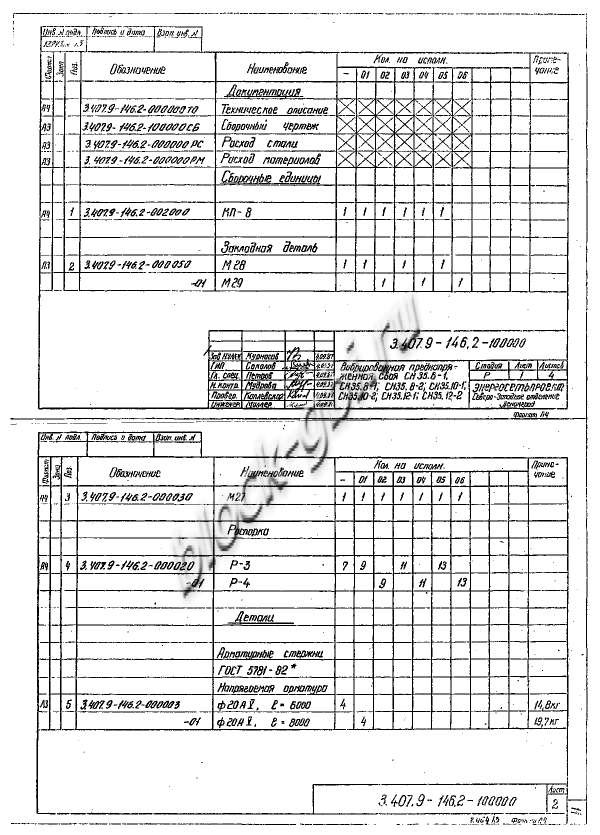 Инв. № подл. Подпись и дата Взам. инв. №
Формат Зона Поз. Обозначение Наименование Кол. на исполн. Приме-
чание
- 01 02 03 04 05 06
Документация
А4 3.407.9-146.2-000000ТО Техническое описание
А3 3.407.9-146.2-100000СБ Сборочный чертеж
А3 3.407.9-146.2-000000РС Расход стали
А3 3.407.9-146.2-000000РМ Расход материалов
Сборочные единицы
А4 1 3.407.9-146.2-002000 КП-8 1 1 1 1 1 1
Закладная деталь
А3 2 3.407.9-146.2-000050 М28 1 1 1 1
-01 М29 1 1 1
3.407.9-146.2-100000
Гип Соколов
Гл. спец. Петров
Н. контр. Мудрова
Провер.
Инженер Миллер
Вибрированная предварительно напря-
женная свая СН35.6-1,
СН35.8-1, СН35.8-2, СН35.10-1,
СН35.10-2, СН35.12-1, СН35.12-2
Стадия Лист Листов
Р 1 4
Энергосетьпроект
Северо-Западное отделение
Ленинград
Формат А4
Инв. № подл. Подпись и дата Взам. инв. №
Формат Зона Поз. Обозначение Наименование Кол. на исполн. Приме-
чание
- 01 02 03 04 05 06
А4 3 3.407.9-146.2-000030 М27 1 1 1 1 1 1 1
Распорка
А4 4 3.407.9-146.2-000020 Р-3 7 9 11 13
-01 Р-4 9 11 13
Детали
Арматурные стержни
ГОСТ 5781-82*
Напрягаемая арматура
А3 5 3.407.9-146.2-000003 ф20АV, ℓ=6000 4 14,8кг
-01 ф20АV, ℓ=8000 4 19,7кг
3.407.9-146.2-100000
Лист
2